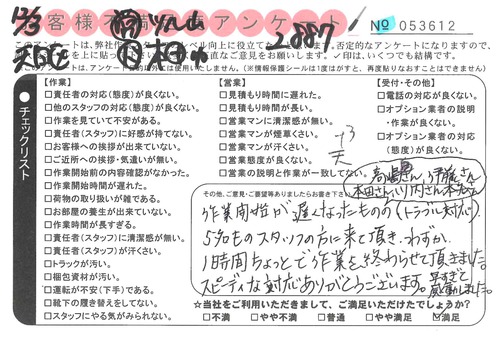 お客様不満足度アンケート
№ 053612
12/3
2887
本田
このアンケートは、弊社
上に役立て
否定的なアンケートになりますので、
✓印は、いくつでも結構です。
このアンケートは、アンケート
(※情報保護シールは1度がすと、再度貼りなおすことはできます)
チェックリスト
【作業】
□責任者の対応(態度)が良くない。
□他のスタッフの対応(態度)が良くない。
□作業を見ていて不安がある。
□責任者(スタッフ)に好感が持てない。
□お客様への挨拶が出来ていない。
□ご近所への挨拶・気遣いが無い。
□作業開始前の内容確認がなかった。
□作業開始時間が遅れた。
□荷物の取り扱いが雑である。
□お部屋の養生が出来ていない。
□作業時間が長すぎる。
□責任者(スタッフ)に清潔感が無い。
□責任者(スタッフ)が汗くさい。
□トラックが汚い。
□梱包資材が汚い。
□運転が不安(下手)である。
□靴下の履き替えをしてない。
□スタッフにやる気がみられない。
【営業】
□見積もり時間に遅れた。
□見積もり時間が長い。
□営業マンに清潔感が無い。
□営業マンが煙草くさい。
□営業マンが汗くさい。
□営業態度が良くない。
□営業の説明と作業が一致してない。
【受付・その他】
□電話の対応が良くない。
□オプション業者の説明・作業が良くない。
□オプション業者の対応(態度)が良くない。
その他、ご意見・ご要望等ありましたらお書き下さい
高嶋さん、伊藤さん
本田さん、
作業開始が遅くなったものの(トラブル対応)
5名ものスタッフの方に来て頂き、わずか
1時間ちょっとで作業を終わらせて頂きました。
スピーディな対応ありがとうございます。早すぎと
感動しました。
☆当社をご利用いただきまして、ご満足いただけたでしょうか?
□不満 □やや不満 □普通 □やや満足 ☑満足